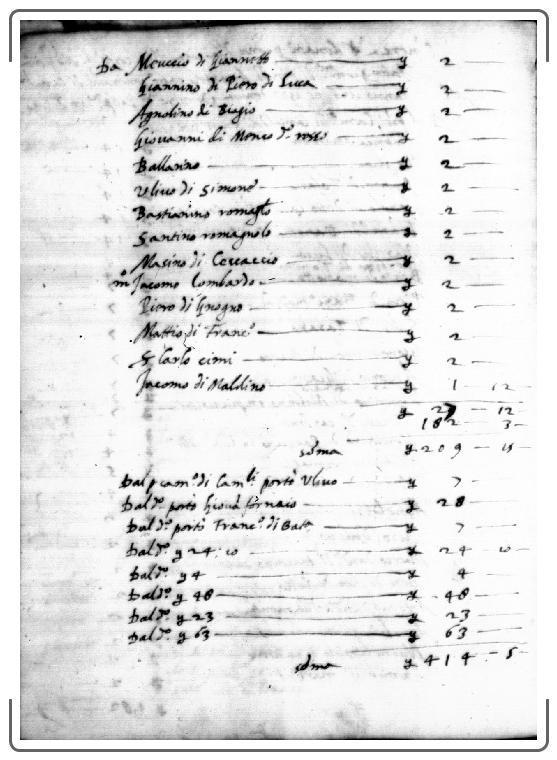 Da Meuccio di Giannetto — y 2 —
Giannino di Piero di Luca — y 2 —
Agnolino di Biagio — y 2 —
Giovanni di Menco d.º rosso — y 2 —
Ballarino — y 2 —
Ulivo di Simone — y 2 —
Bastianino romag.lo — y 2 —
Santino romagnolo — y 2 —
Masino di Ceccaccio — y 2 —
m.º Jacomo Lombardo — y 2 —
Piero di Gnogno — y 2 —
Mattio di Franc.º — y 2 —
S Carlo cimi — y 2 —
Jacomo di Maldino — y 1 12
y 27 — 12
182 — 3
soma y 209 — 15
Dal p cam.º di Camb.i portò Ulivo — y 7 —
Dal d.º portò Giova fornaio — y 28
Dal d.º portò Franc.º di Batt.a — y 7 —
Dal d.º y 24 : 10 — y 24 10
Dal d.º y 4 — y 4
Dal d.º y 48 — y 48
Dal d.º y 23 — y 23
Dal d.º y 63 — y 63
soma y 414 — 5